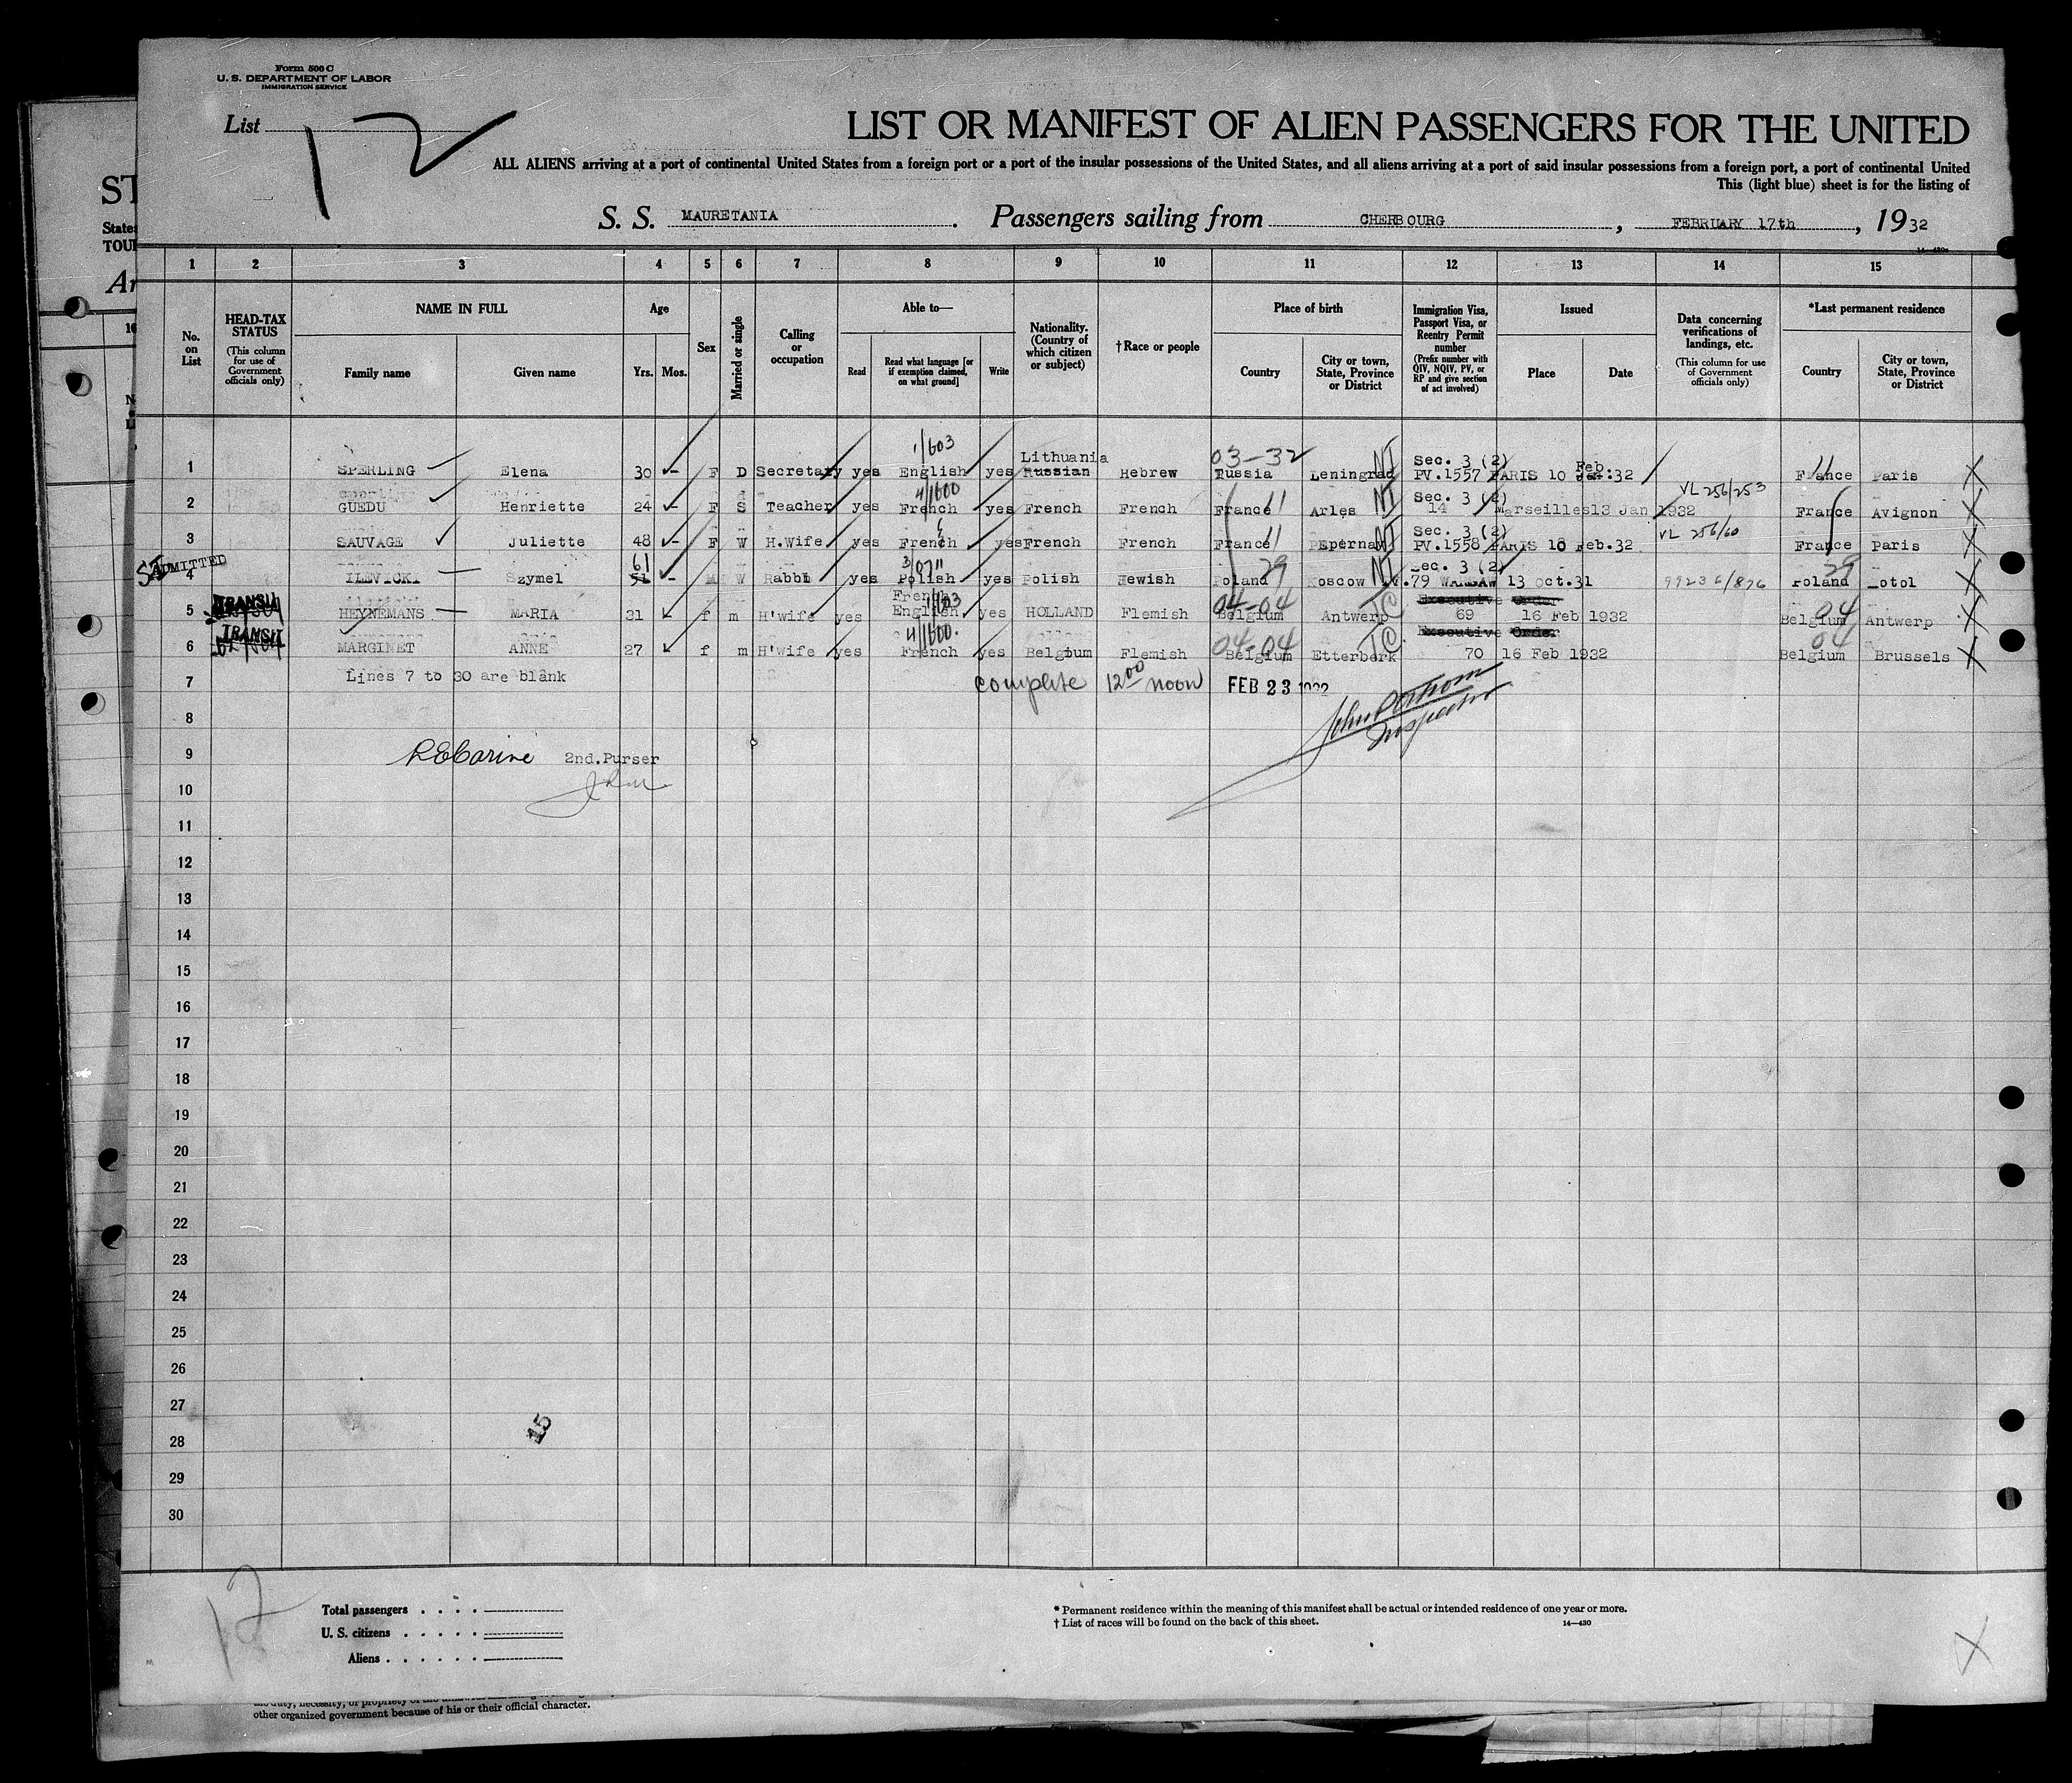 Form 500 C
U. S. DEPARTMENT OF LABOR
IMMIGRATION SERVICE
List 12
LIST OR MANIFEST OF ALIEN PASSENGERS FOR THE UNITED
ALL ALIENS arriving at a port of continental United States from a foreign port or a port of the insular possessions of the United States, and all aliens arriving at a port of said insular possessions from a foreign port, a port of continental United
This (light blue) sheet is for the listing of
S. S. MAURETANIA. Passengers sailing from CHERBOURG, FEBRUARY 17th, 1932
1 2 3 4 5 6 7 8 9 10 11 12 13 14 15
No. on List
HEAD-TAX STATUS (This column for use of Government officials only)
NAME IN FULL
Family name Given name
Age
Yrs. Mos.
Sex
Married or single
Calling or occupation
Able to—
Read Read what language [or if exemption claimed, on what ground] Write
Nationality. (Country of which citizen or subject)
†Race or people
Place of birth
Country City or town, State, Province or District
Immigration Visa, Passport Visa, or Reentry Permit number (Prefix number with QIV, NQIV, PV, or RP and give section of act involved)
Issued
Place Date
Data concerning verifications of landings, etc. (This column for use of Government officials only)
*Last permanent residence
Country City or town, State, Province or District
1 SPERLING Elena 30 - F D Secretary yes English yes Lithuania Russian Hebrew 03-32 Russia Leningrad NI Sec. 3 (2) PV.1557 PARIS 10 Feb. 32 France Paris
2 GUEDU Henriette 24 - F S Teacher yes French yes French French France 11 Arles NI Sec. 3 (2) 14 Marseilles 13 Jan 1932 VL 256/253 France Avignon
3 SAUVAGE Juliette 48 - F W H.Wife yes French yes French French France 11 Epernay NI Sec. 3 (2) PV.1558 PARIS 10 Feb.32 VL 256/60 France Paris
ADMITTED
4 ILEVICKI Szymel 61 51 - M W Rabbi yes Polish yes Polish Jewish Poland 29 Moscow NI Sec. 3 (2) .79 WARSAW 13 Oct.31 99236/876 Poland 29
TRANSIT
5 HEYNEMANS MARIA 31 f m H'wife yes French English yes HOLLAND Flemish 04-04 Belgium Antwerp TC Executive Order 69 16 Feb 1932 04 Belgium Antwerp
TRANSIT
6 MARGINET ANNE 27 f m H'wife yes French yes Belgium Flemish 04-04 Belgium Etterberk TC Executive Order 70 16 Feb 1932 04 Belgium Brussels
7 Lines 7 to 30 are blank complete 12 00 noon FEB 23 1932
8 Inspector
9 2nd.Purser
10
11
12
13
14
15
16
17
18
19
20
21
22
23
24
25
26
27
15
28
29
30
12
Total passengers
U. S. citizens
Aliens
* Permanent residence within the meaning of this manifest shall be actual or intended residence of one year or more.
† List of races will be found on the back of this sheet. 14—430
other organized government because of his or their official character.